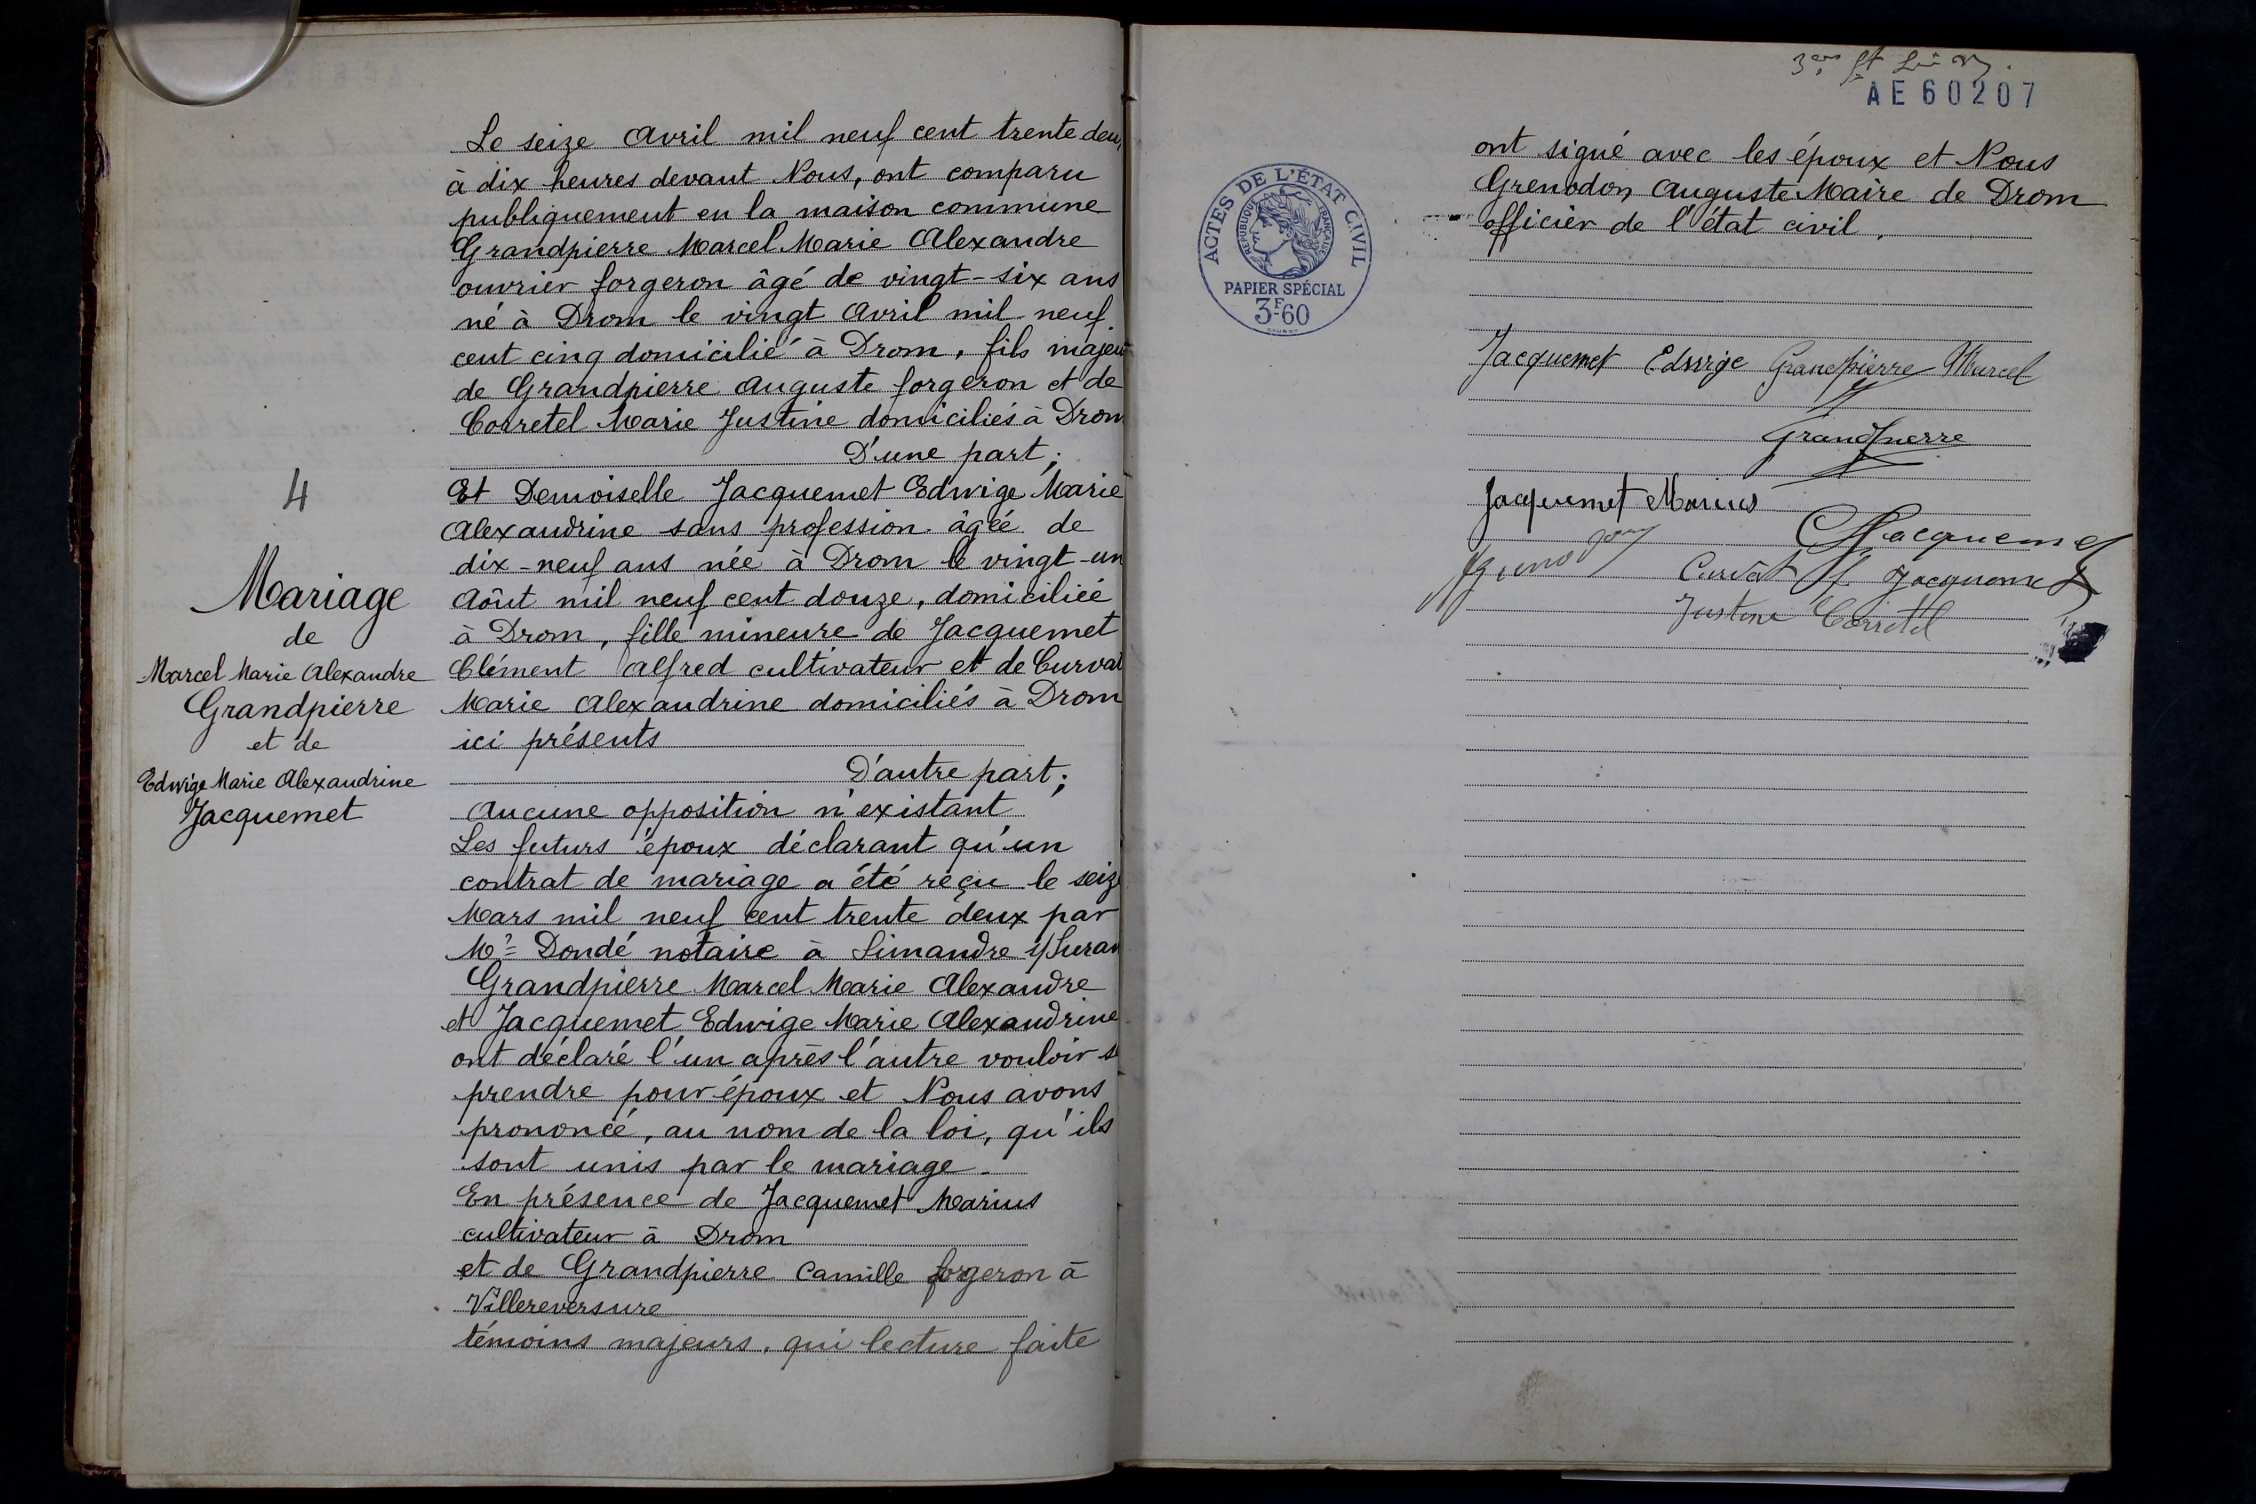 Le seize Avril mil neuf cent trente deux
à dix heures devant Nous, ont comparu
publiquement en la maison commune
Grandpierre Marcel Marie Alexandre
ouvrier forgeron âgé de vingt-six ans
né à Drom le vingt Avril mil neuf
cent cinq domicilié à Drom, fils majeur
de Grandpierre Auguste forgeron et de
Corretel Marie Justine domiciliés à Drom
D'une part;
4
Et Demoiselle Jacquemet Edwige Marie
Alexandrine sans profession âgée de
dix-neuf ans née à Drom le vingt-un
Août mil neuf cent douze, domiciliée
à Drom, fille mineure de Jacquemet
Clément Alfred cultivateur et de Curvat
Marie Alexandrine domiciliés à Drom
ici présents
D'autre part;
Mariage
de
Marcel Marie Alexandre
Grandpierre
et de
Edwige Marie Alexandrine
Jacquemet
Aucune opposition n'existant
Les futurs époux déclarant qu'un
contrat de mariage a été reçu le seize
Mars mil neuf cent trente deux par
Me Dondé notaire à Simandre s/Suran
Grandpierre Marcel Marie Alexandre
et Jacquemet Edwige Marie Alexandrine
ont déclaré l'un après l'autre vouloir se
prendre pour époux et Nous avons
prononcé, au nom de la loi, qu'ils
sont unis par le mariage.
En présence de Jacquemet Marius
cultivateur à Drom
et de Grandpierre Camille forgeron à
Villereversure
témoins majeurs, qui lecture faite
AE 60207
ont signé avec les époux et Nous
Grenodon, Auguste Maire de Drom
officier de l'état civil.
ACTES DE L'ÉTAT CIVIL
RÉPUBLIQUE FRANÇAISE
PAPIER SPÉCIAL
3F60
Jacquemet Edwige Grandpierre Marcel
Grandpierre
Jacquemet Marius
Jacquemet
Curvat f. Jacquemet
Justine Corretel